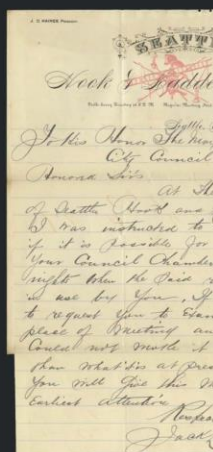 J. C. HAINES, President
SEATT
Hook & Ladde
Seattle
To His Honor The May
City Council
Honored Sirs
At
of Seattle Hook and
I was instructed to
if it is Possible for
Your Council Chamber
nights when the Said
in use by You, If
to request You to Exam
place of Meeting an
Could not make it
than what is at pres
You will Give this M
Earliest attention
Respec
Jack